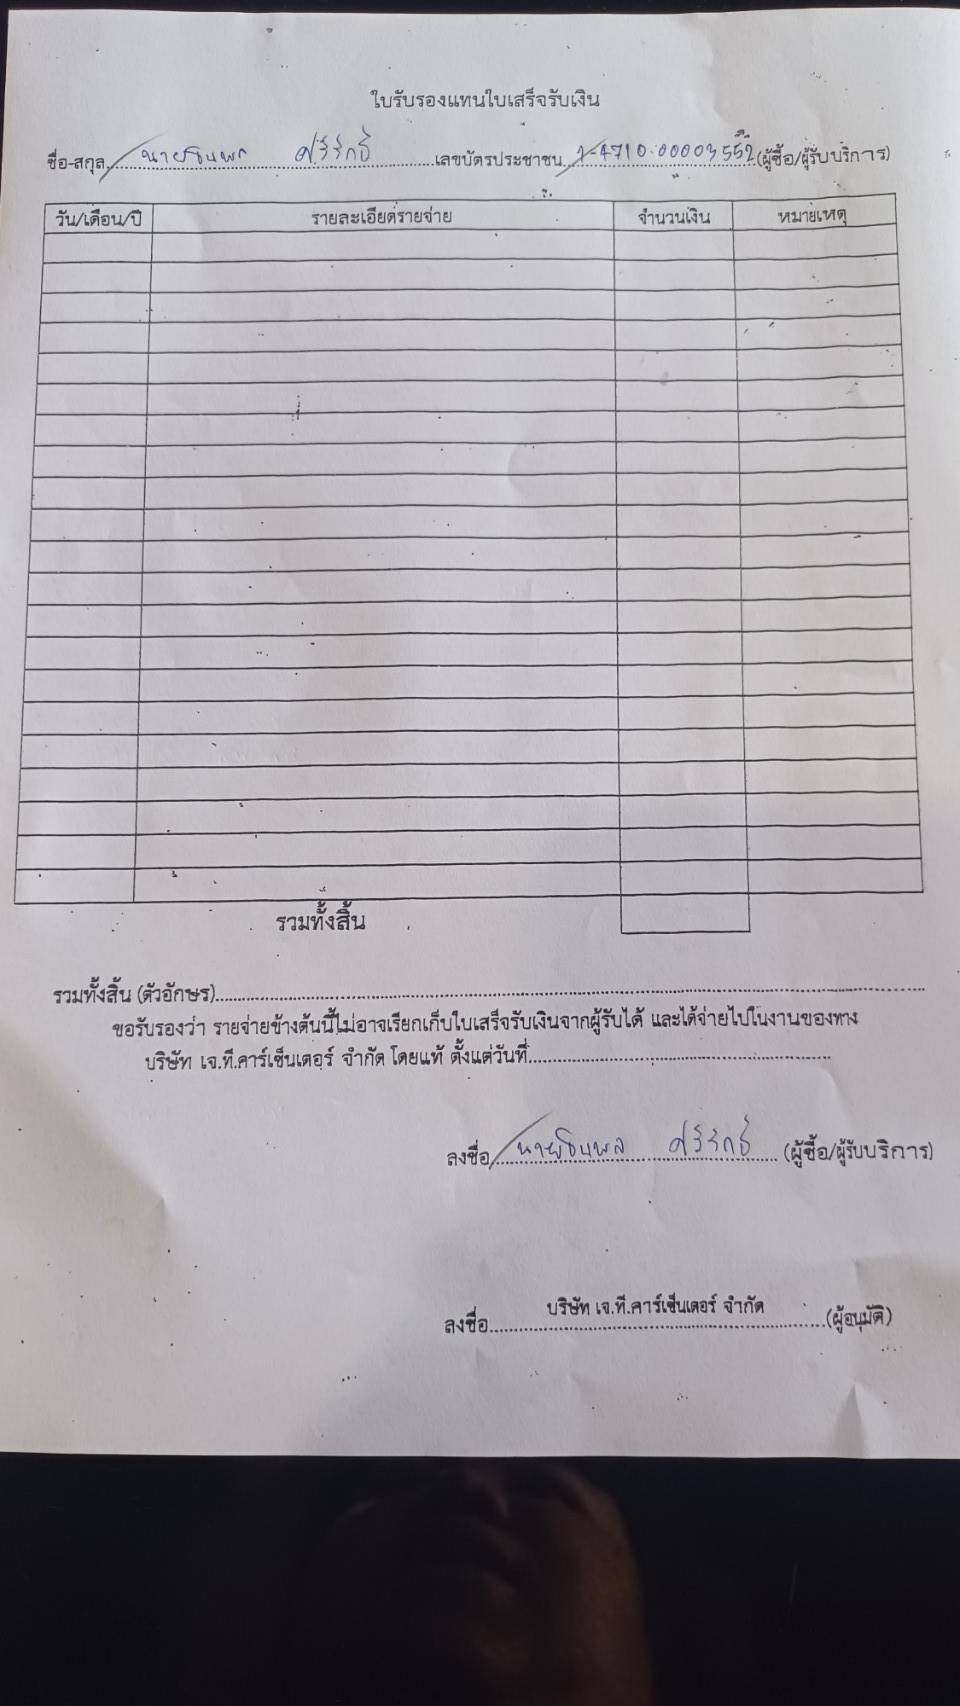 ใบรับรองแทนใบเสร็จรับเงิน
ชื่อ-สกุล ศรีรักธ์ เลขบัตรประชาชน (ผู้ซื้อ/ผู้รับบริการ)
วัน/เดือน/ปี รายละเอียดรายจ่าย จำนวนเงิน หมายเหตุ
รวมทั้งสิ้น
รวมทั้งสิ้น (ตัวอักษร)
ขอรับรองว่า รายจ่ายข้างต้นนี้ไม่อาจเรียกเก็บใบเสร็จรับเงินจากผู้รับได้ และได้จ่ายไปในงานของทาง
บริษัท เจ.ที.คาร์เซ็นเตอร์ จำกัด โดยแท้ ตั้งแต่วันที่
ลงชื่อ ศรีรักธ์ (ผู้ซื้อ/ผู้รับบริการ)
บริษัท เจ.ที.คาร์เซ็นเตอร์ จำกัด
ลงชื่อ (ผู้อนุมัติ)